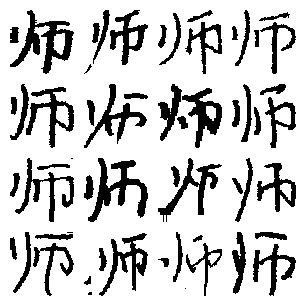 师师师师
师师师师
师师师师
师师师师